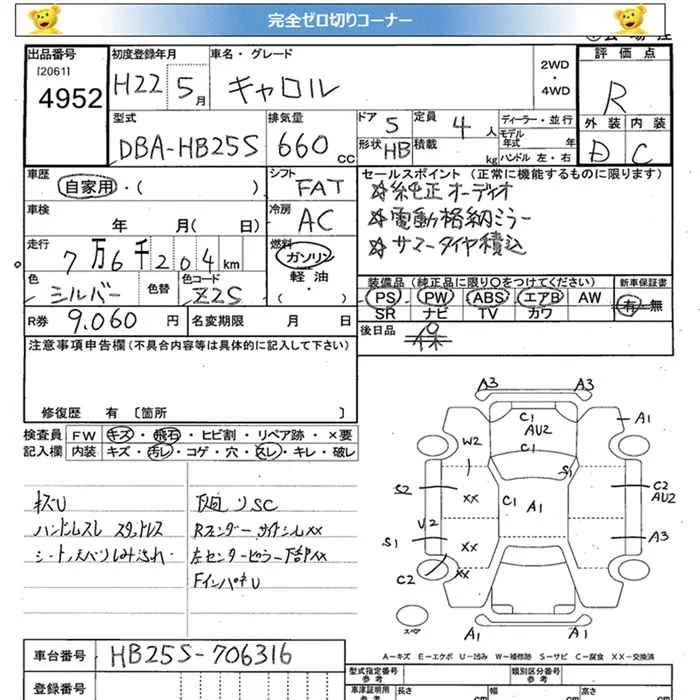 完全ゼロ切りコーナー
出品番号 初度登録年月 車名・グレード 2WD・4WD 評価点
[2061]
4952 H22 5月 キャロル R
外装 内装
型式 排気量 ドア 5 定員 4人 ディーラー・並行
DBA-HB25S 660cc 形状 HB 積載 kg モデル年式 年式 D C
ハンドル 左・右
車歴 自家用・( ) シフト FAT セールスポイント (正常に機能するものに限ります)
☆純正オーディオ
車検 年 月(日) 冷房 AC ☆電動格納ミラー
☆サマータイヤ積込
走行 7万6千204km 燃料 ガソリン・軽油・( )
色 シルバー 色替 色コード Z2S 装備品 (純正品に限り○をつけてください) 新車保証書
PS PW ABS エアB AW 有・無
SR ナビ TV カワ
R券 9.060円 名変期限 月 日 後日品 保
注意事項申告欄(不具合内容等は具体的に記入して下さい)
修復歴 有 〔箇所 〕
検査員 FW キズ・飛石・ヒビ割・リペア跡・×要
記入欄 内装 キズ・汚レ・コゲ・穴・スレ・キレ・破レ
キズU 下回りSC
ハンドルスレ スタッドレス
シート
左センターピラー下部XX
FインパネU
A3 A3
C1 A1
AU2
W2 C1
S1
S2 XX C1 A1 C2
AU2
V2
S1 XX A3
C2 XX
スペア A1 A1
A－キズ E－エクボ U－凹み W－補修跡 S－サビ C－腐食 XX－交換済
車台番号 HB25S-706316
型式指定番号 参考 類別区分番号 参考
登録番号 車車証明用 参考 長さ cm 幅 cm 高さ cm